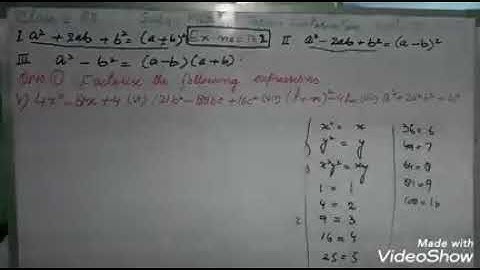 I. a² + 2ab + b² = (a+b)² Ex no = 14.2 II a² - 2ab + b² = (a-b)²
III a² - b² = (a-b)(a+b).
Ques ① Factorise the following expressions
v) 4x² - 8x + 4 (vi) 121b² - 88bc + 16c² (vii) (l+m)² - 4lm (viii) a⁴ + 2a²b² + b⁴
x² = x
y² = y
x²y² = xy
1 = 1
4 = 2
9 = 3
16 = 4
25 = 5
36 = 6
49 = 7
64 = 8
81 = 9
100 = 10
Made with
VideoShow